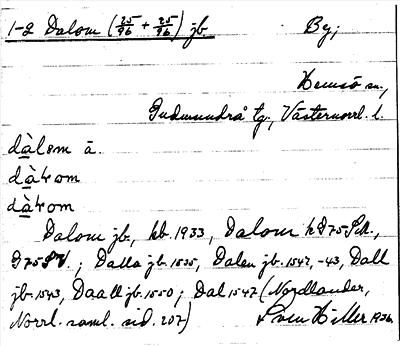 1-2 Dalom (25/96 + 25/96) jb. By;
Hemsö sn.,
Gudmundrå tg., Västernorrl. l.
dàlom ä.
dàɫom
dàɫom
Dalom jb., kb. 1933, Dalom
jb.; Dalla jb. 1535, Dalen jb. 1542, -43, Dall
jb. 1543, Daall jb. 1550; Dal 1547 (Nordlander,
Norrl. saml. sid. 207) Sven Hiller 1936.